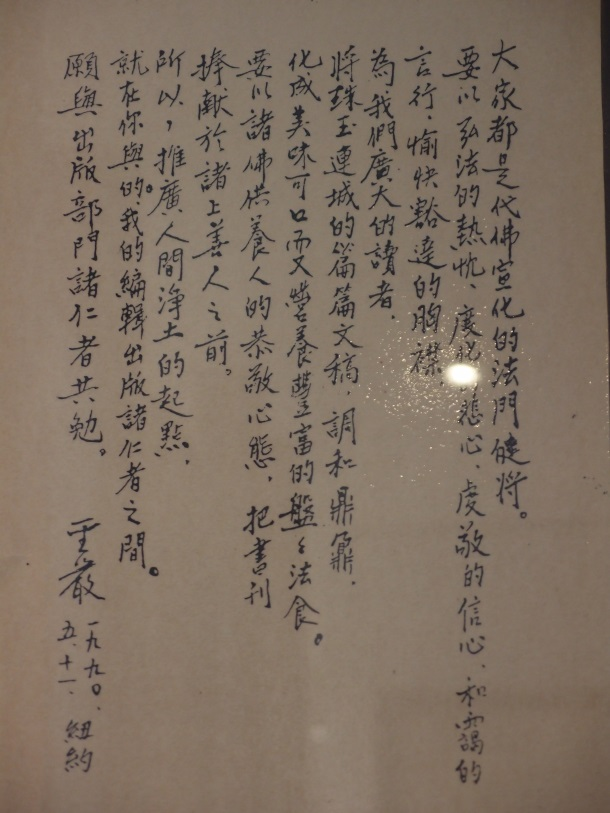 大家都是代佛宣化的法門健將。
要以弘法的熱忱、度脫的悲心、虔敬的信心、和靄的
言行、愉快豁達的胸襟，
為我們廣大的讀者，
將珠玉連城的篇篇文稿，調和鼎鼐，
化成美味可口而又營養豐富的盤盤法食。
要以諸佛供養人的恭敬心態，把書刊
捧獻於諸上善人之前。
所以，推廣人間淨土的起點，
就在你與的、我的編輯出版諸仁者之間。
願與出版部門諸仁者共勉。
聖嚴 一九九〇、
五、十一、紐約